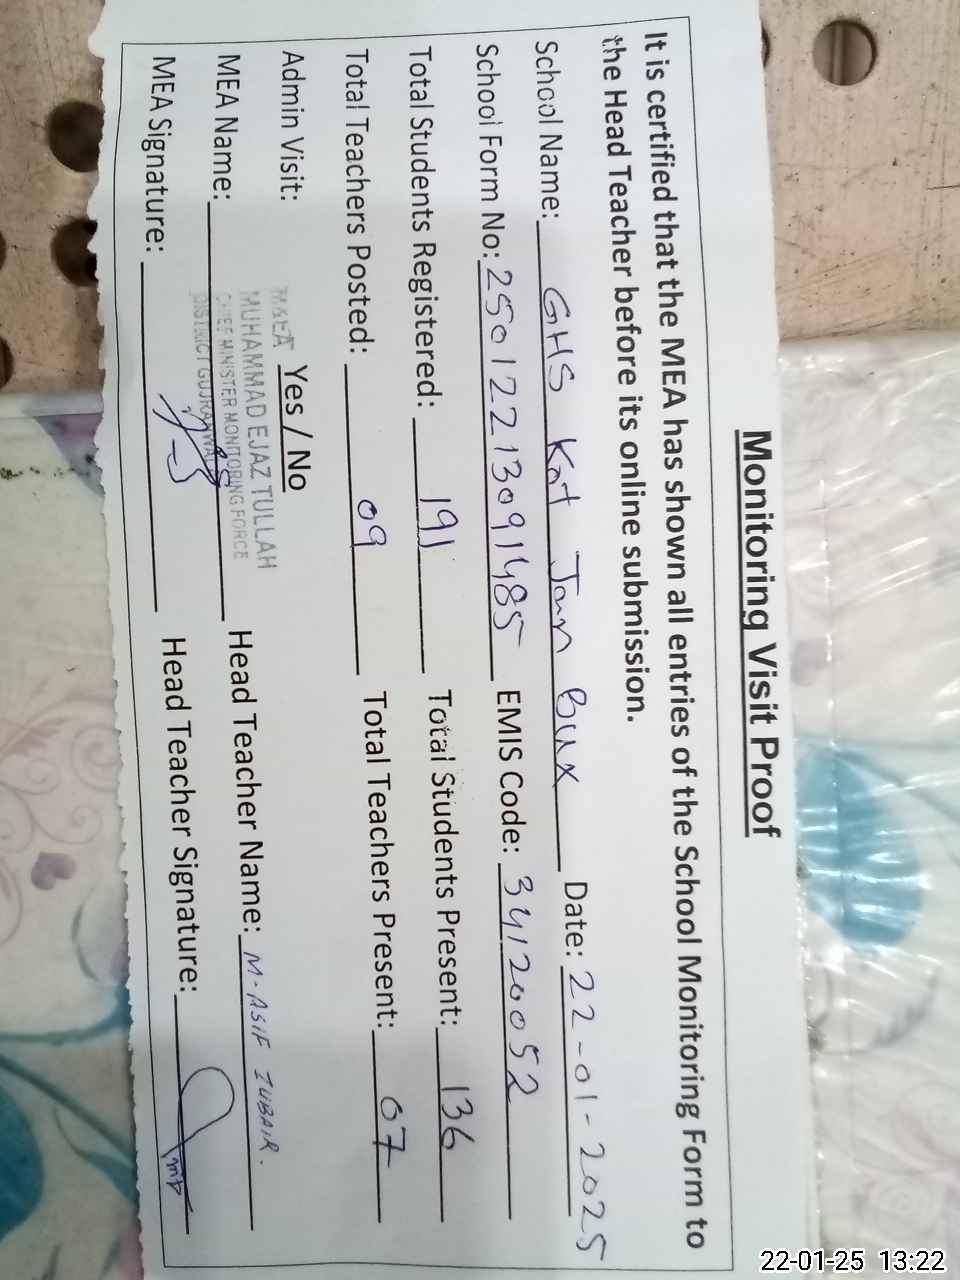 Monitoring Visit Proof
It is certified that the MEA has shown all entries of the School Monitoring Form to
the Head Teacher before its online submission.
School Name: GHS Kot Jan Bux Date: 22-01-2025
School Form No: 25012213091485 EMIS Code: 34120052
Total Students Registered: 191 Total Students Present: 136
Total Teachers Posted: 09 Total Teachers Present: 07
Admin Visit: Yes / No
MEA Name: Head Teacher Name: M. ASIF ZUBAIR.
M&EA
MUHAMMAD EJAZ TULLAH
CHIEF MINISTER MONITORING FORCE
DISTRICT GUJRANWALA
MEA Signature: Head Teacher Signature:
22-01-25 13:22